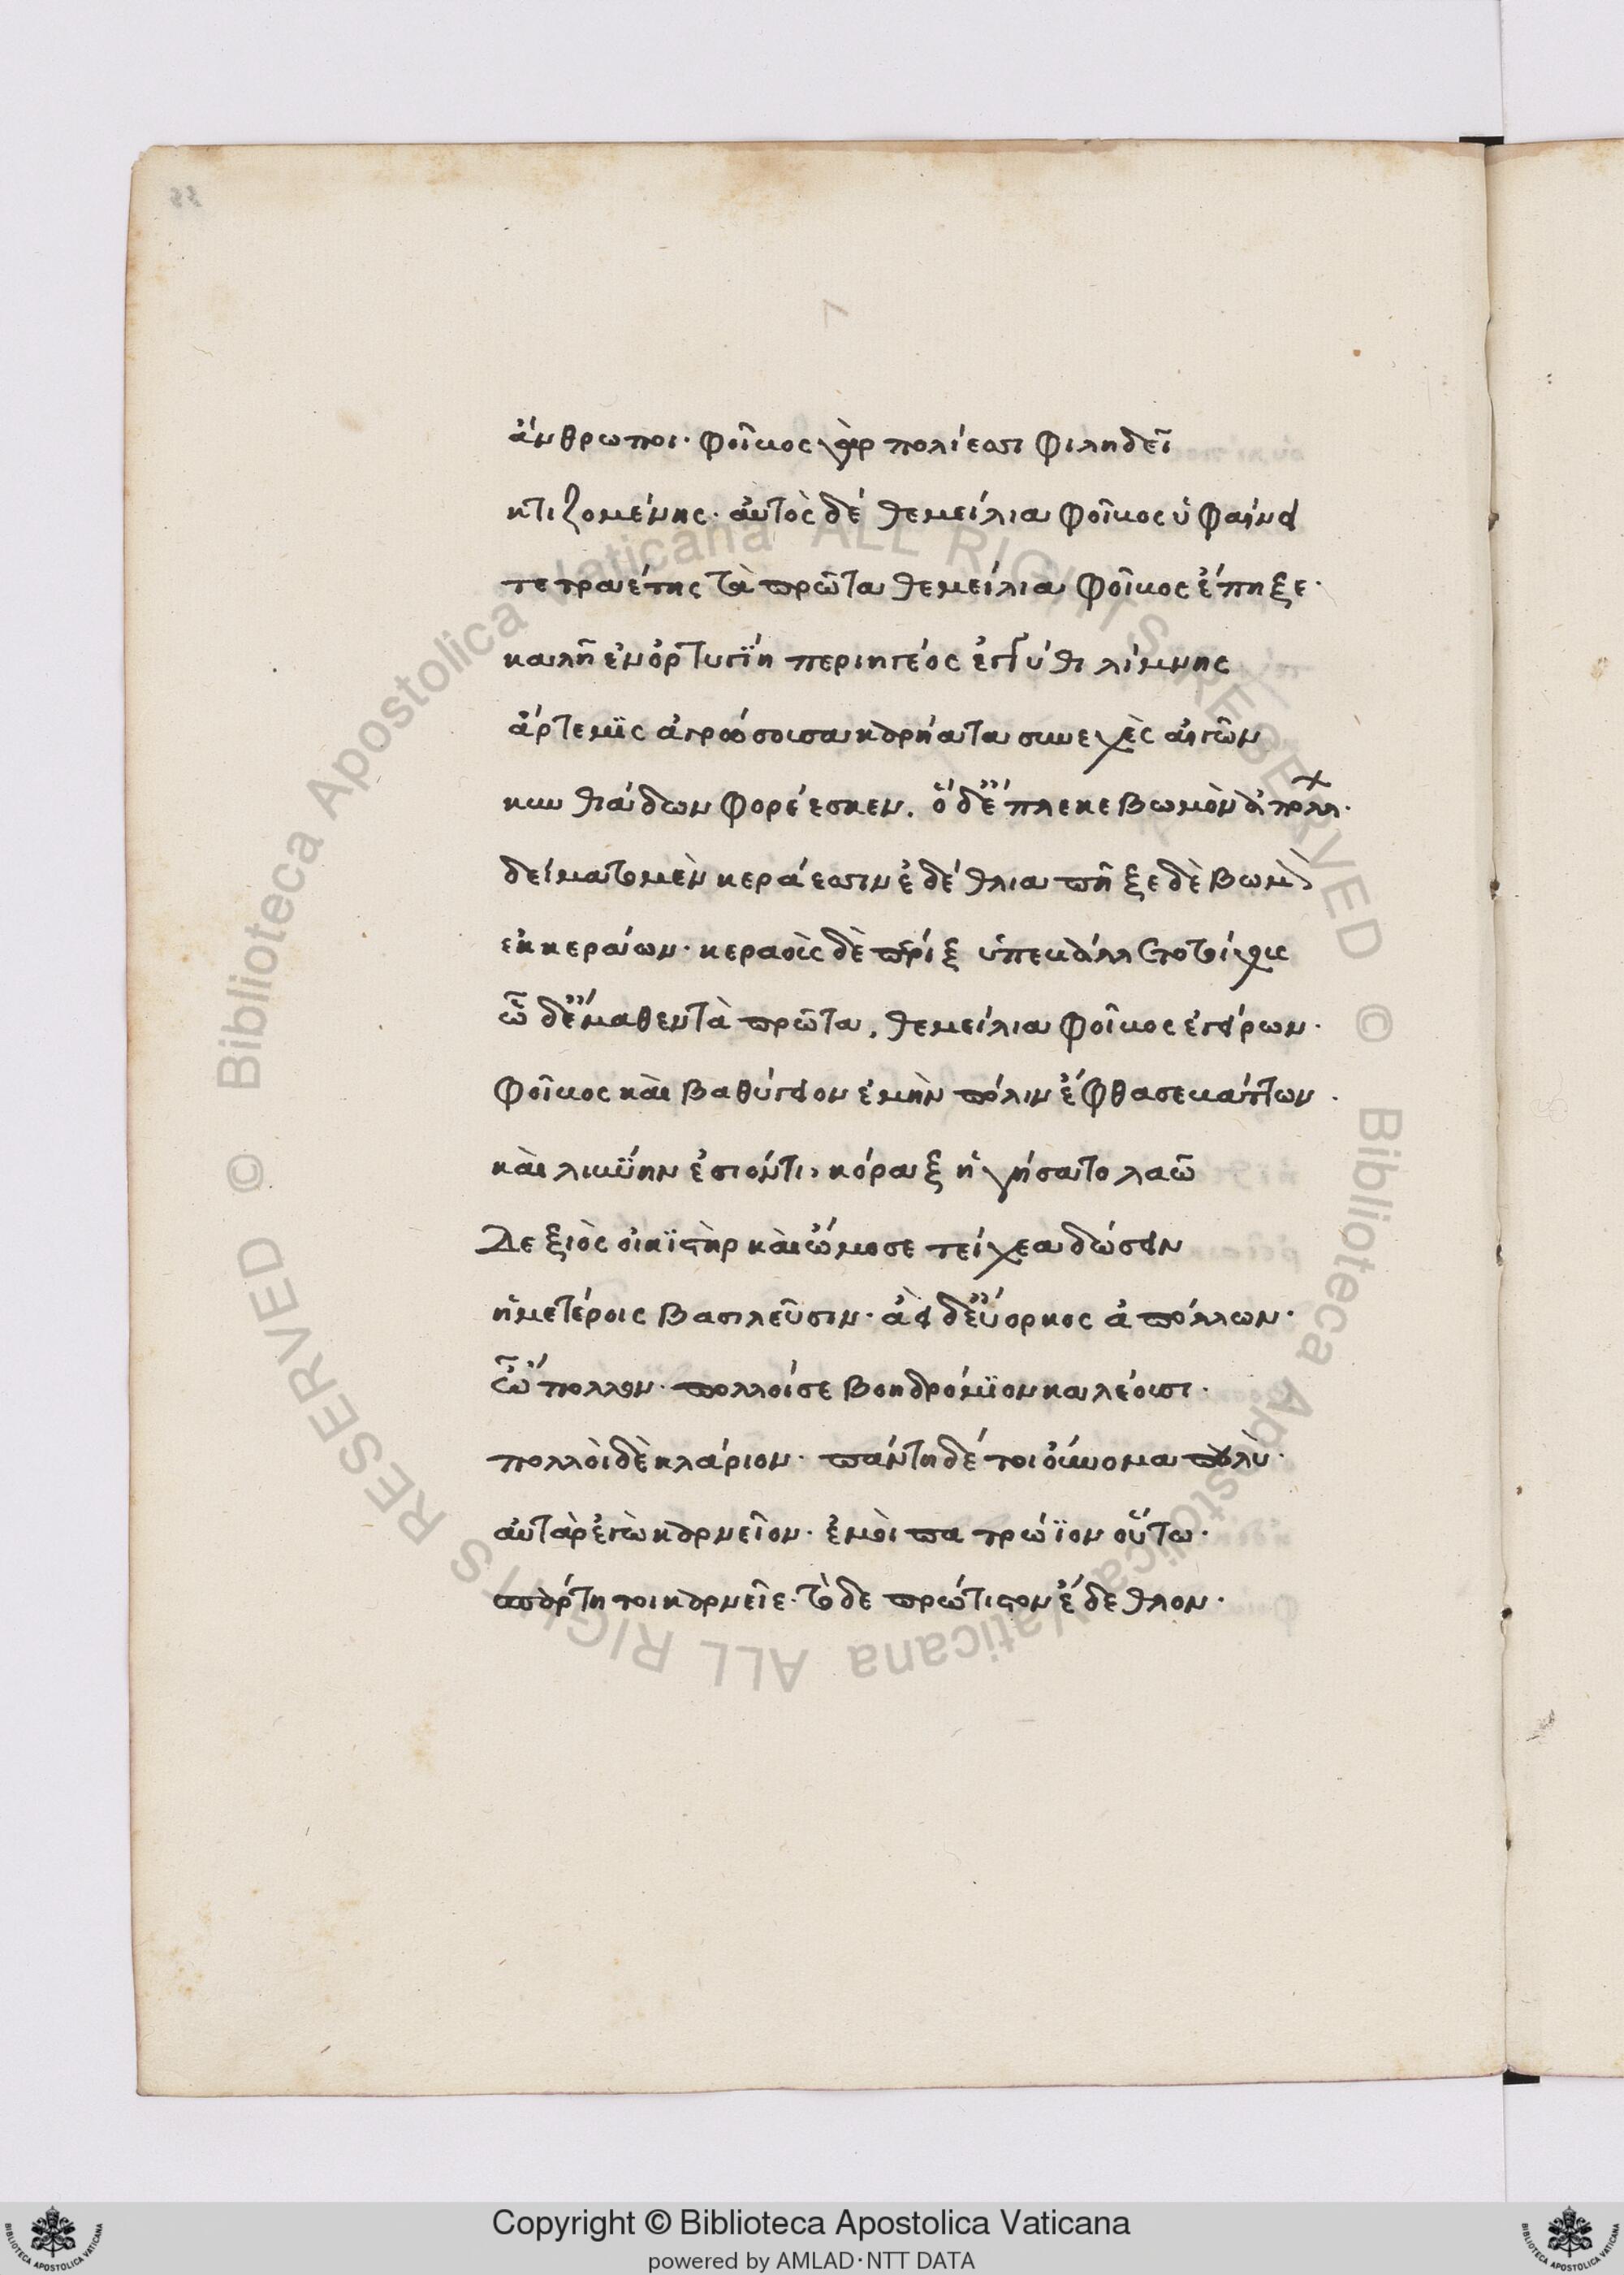 ἄνθρωποι· φοῖβος γὰρ πολίεσσι φιληδεῖ
κτιζομένης· αὐτὸς δέ θεμείλια φοῖβος ὑφαίνει
τετραέτης τὰ πρῶτα θεμείλια φοῖβος ἔπηξε·
καλῆ ἐν ὀρτυγΐη περιηγέος ἐγγύθι λίμνης
ἄρτεμϊς ἀγρώσσουσα καρήατα συνεχὲς αἰγῶν
κυνθιάδων φορέεσκεν. ὅ δ' ἔπλεκε βωμὸν ἀπολλ·
δείματο μὲν κεράεσσιν ἐδέθλια πῆξε δὲ βωμὸν
ἐκ κεράων· κεραοὺς δὲ πέριξ ὑπεβάλλετο τοίχους
ὧδ' ἔμαθεν τὰ πρῶτα. θεμείλια φοῖβος ἐγείρων·
φοῖβος καὶ βαθύγειον ἐμὴν πόλιν ἔφθασε βάττων·
καὶ λιβύην ἐσιόντι, κόραξ ἡγήσατο λαῶ
Δεξιὸς οἰκϊστὴρ καὶ ὤμοσε τείχεα δώσειν
ἡμετέροις βασιλεῦσιν· ἀεὶ δ' εὔορκος ἀπόλλων·
ὦ 'πολλον· πολλοί σε βοηδρόμϊον καλέουσι·
πολλοὶ δὲ κλάριον· πάντη δέ τοι οὔνομα πουλὺ·
αὐτὰρ ἐγὼ καρνεῖον· ἐμοὶ πατρώϊον οὕτω·
σπάρτη τοι καρνεῖε· τὸ δε πρώτιστον ἔδεθλον·
33
Copyright © Biblioteca Apostolica Vaticana
powered by AMLAD·NTT DATA
© Biblioteca Apostolica Vaticana ALL RIGHTS RESERVED © Biblioteca Apostolica Vaticana ALL RIGHTS RESERVED